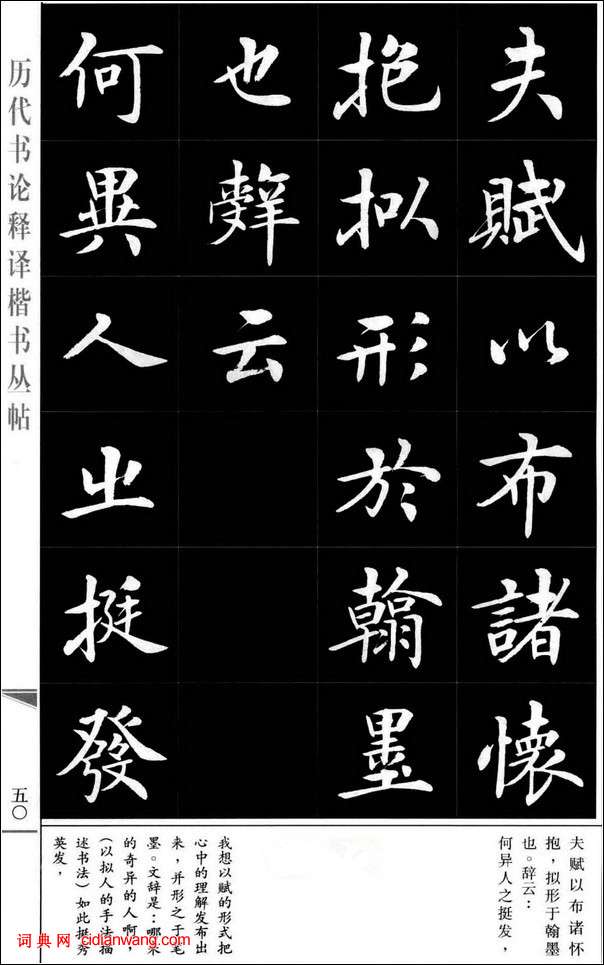 夫賦以布諸懷
抱拟形於翰墨
也辭云
何異人之挺發
历代书论释译楷书丛帖
五〇
夫赋以布诸怀
抱，拟形于翰墨
也。辞云：
何异人之挺发，
我想以赋的形式把
心中的理解发布出
来，并形之于笔
墨。文辞是：哪来
的奇异的人啊，
（以拟人的手法描
述书法）如此挺秀
英发，
词典网 cidianwang.com